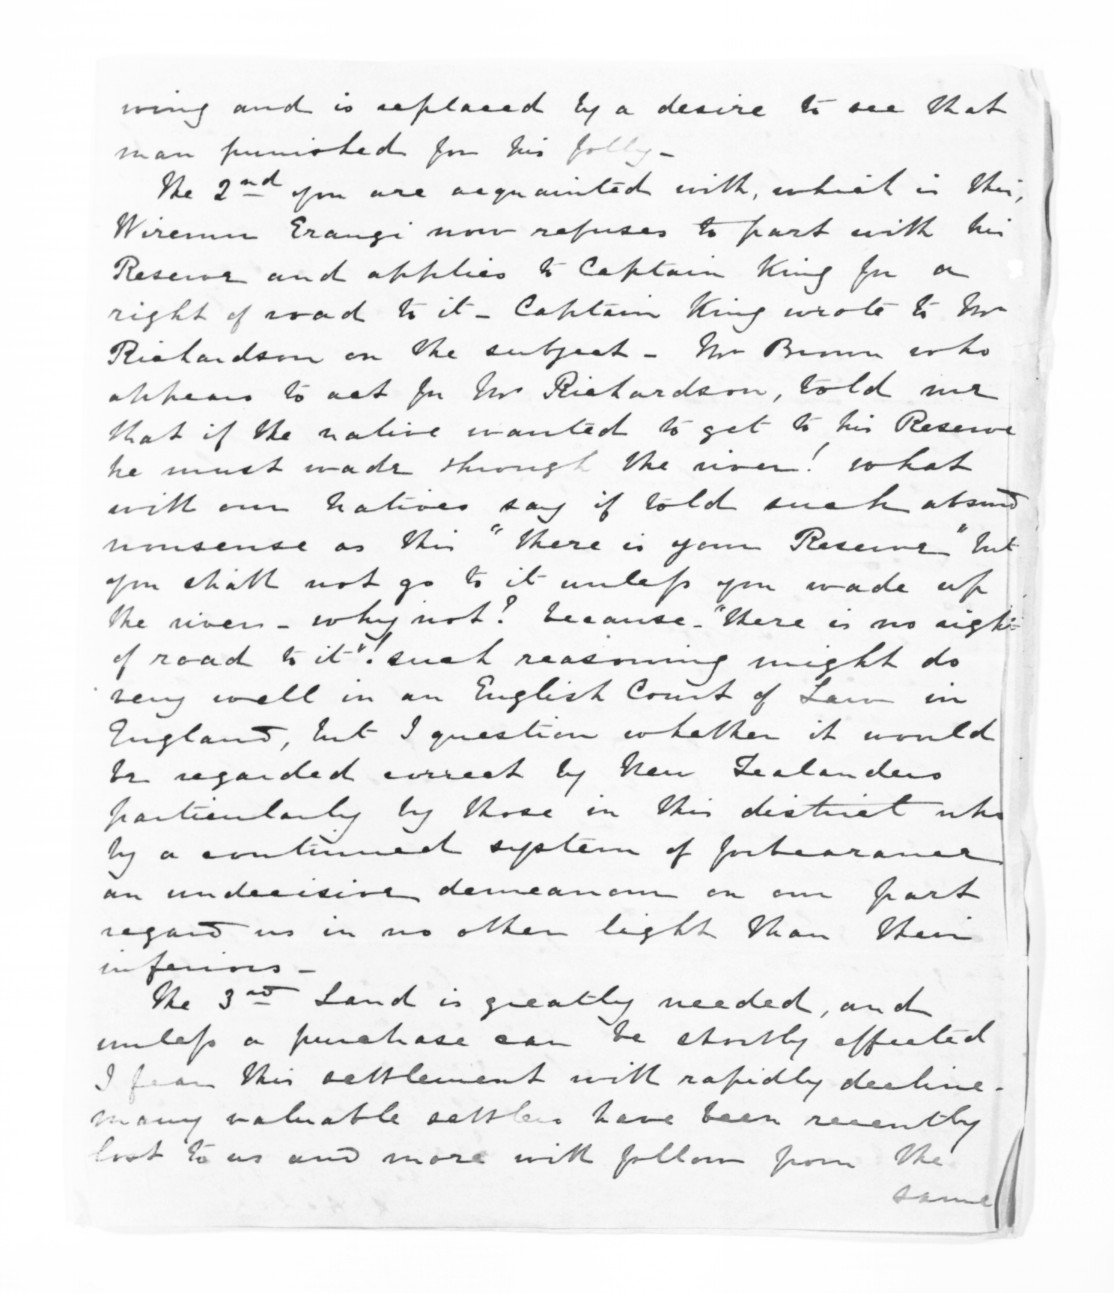 wing and is replaced by a desire to see that
man punished for his folly -
The 2nd you are acquainted with, which is this,
Wiremu Erangi now refuses to part with his
Reserve and applies to Captain King for a
right of road to it - Captain King wrote to Mr
Richardson on the subject - Mr Brown who
appears to act for Mr Richardson, told me
that if the native wanted to get to his Reserve
he must wade through the river! what
will our Natives say if told such absurd
nonsense as this "there is your Reserve" but
you shall not go to it unless you wade up
the river - why not? because - "there is no right
of road to it"! such reasoning might do
very well in an English Court of Law in
England, but I question whether it would
be regarded correct by New Zealanders
particularly by those in this district who
by a continued system of forbearance
an undecisive demeanour on our part
regard us in no other light than their
inferiors -
The 3rd Land is greatly needed, and
unless a purchase can be shortly effected
I fear this settlement will rapidly decline -
many valuable settlers have been recently
lost to us and more will follow from the
same